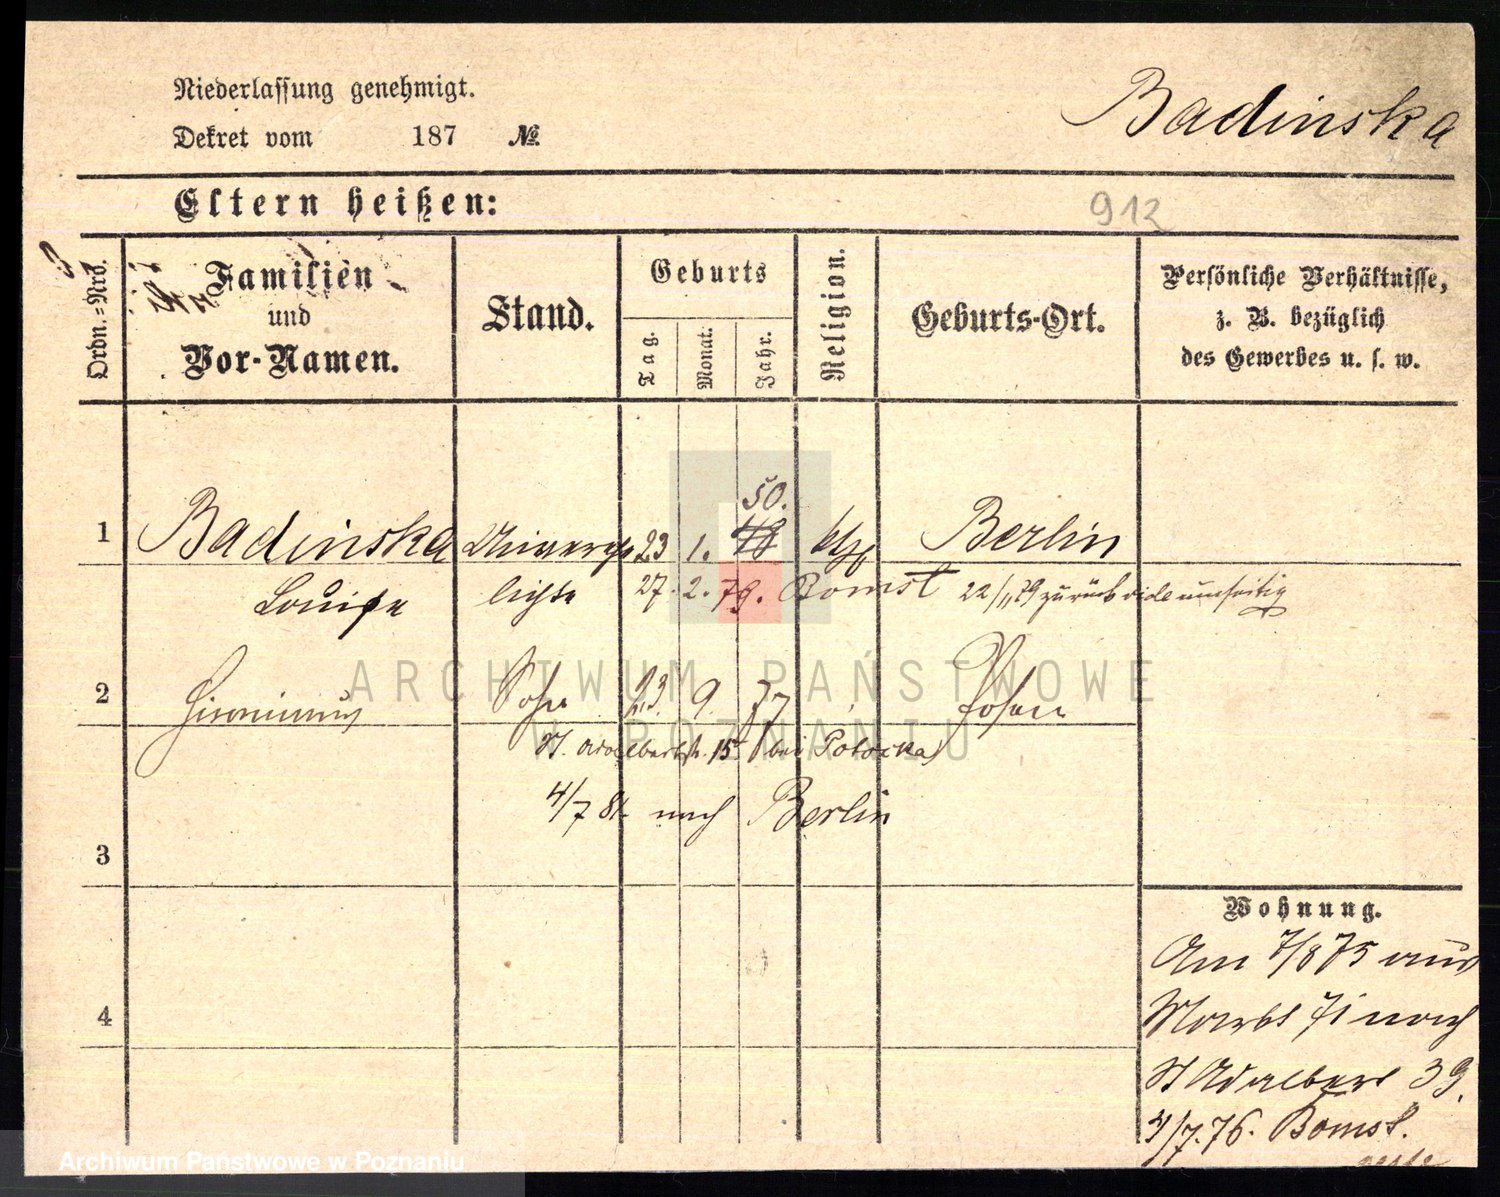 Niederlassung genehmigt.
Dekret vom 187 №
Badinska
Eltern heißen:
912
Ordn.=Nro.
Familien
und
Vor-Namen.
Stand.
Geburts
Tag.
Monat.
Jahr.
Religion.
Geburts-Ort.
Persönliche Verhältnisse,
z. B. bezüglich
des Gewerbes u. s. w.
50.
1 Badinska 23 1. 48 Berlin
Louise 27. 2. 79. Bomst 22/11 79 zurück vide umseitig
2 Hieronimus Sohn 23. 9. 77 Posen
St. Adalbertstr. 15 bei Potocka
4/7 81 nach Berlin
3
4
Wohnung.
Am 7/8 75 aus
Markt 71 nach
St Adalbert 39.
4/7. 76. Bomst.
ARCHIWUM PAŃSTWOWE
W POZNANIU
Archiwum Państwowe w Poznaniu